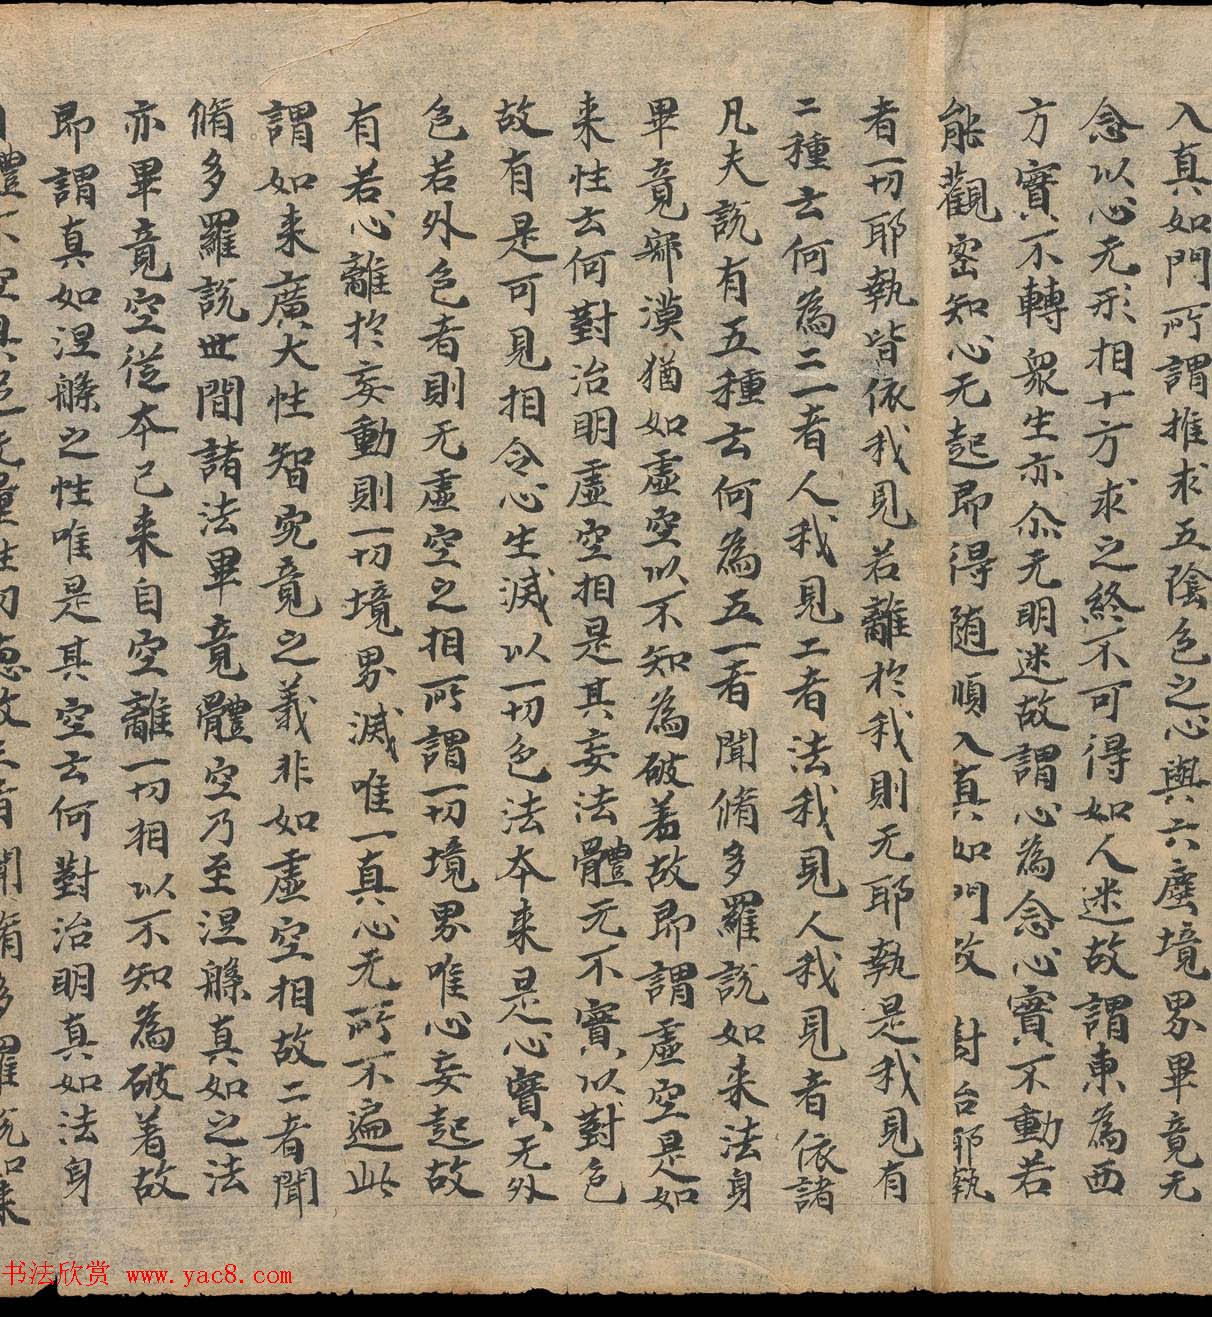 入真如門所謂推求五陰色之心與六塵境界畢竟无
念以心无形相十方求之終不可得如人迷故謂東為西
方實不轉衆生亦尒无明迷故謂心為念心實不動若
能觀密知心无起即得随順入真如門故 對治耶執
者一切耶執皆依我見若離於我則无耶執是我見有
二種云何為二一者人我見二者法我見人我見者依諸
凡夫說有五種云何為五一者聞脩多羅說如来法身
畢竟寂漠猶如虛空以不知為破著故即謂虛空是如
来性云何對治明虛空相是其妄法體无不實以對色
故有是可見相令心生滅以一切色法本来是心實无外
色若外色者則无虛空之相所謂一切境界唯心妄起故
有若心離於妄動則一切境界滅唯一真心无所不遍此
謂如来廣大性智究竟之義非如虛空相故二者聞
脩多羅說世間諸法畢竟體空乃至涅槃真如之法
亦畢竟空從本已来自空離一切相以不知為破着故
即謂真如涅槃之性唯是其空云何對治明真如法身
自體不空具足无量性功德故三者聞脩多羅說如来
书法欣赏 www.yac8.com